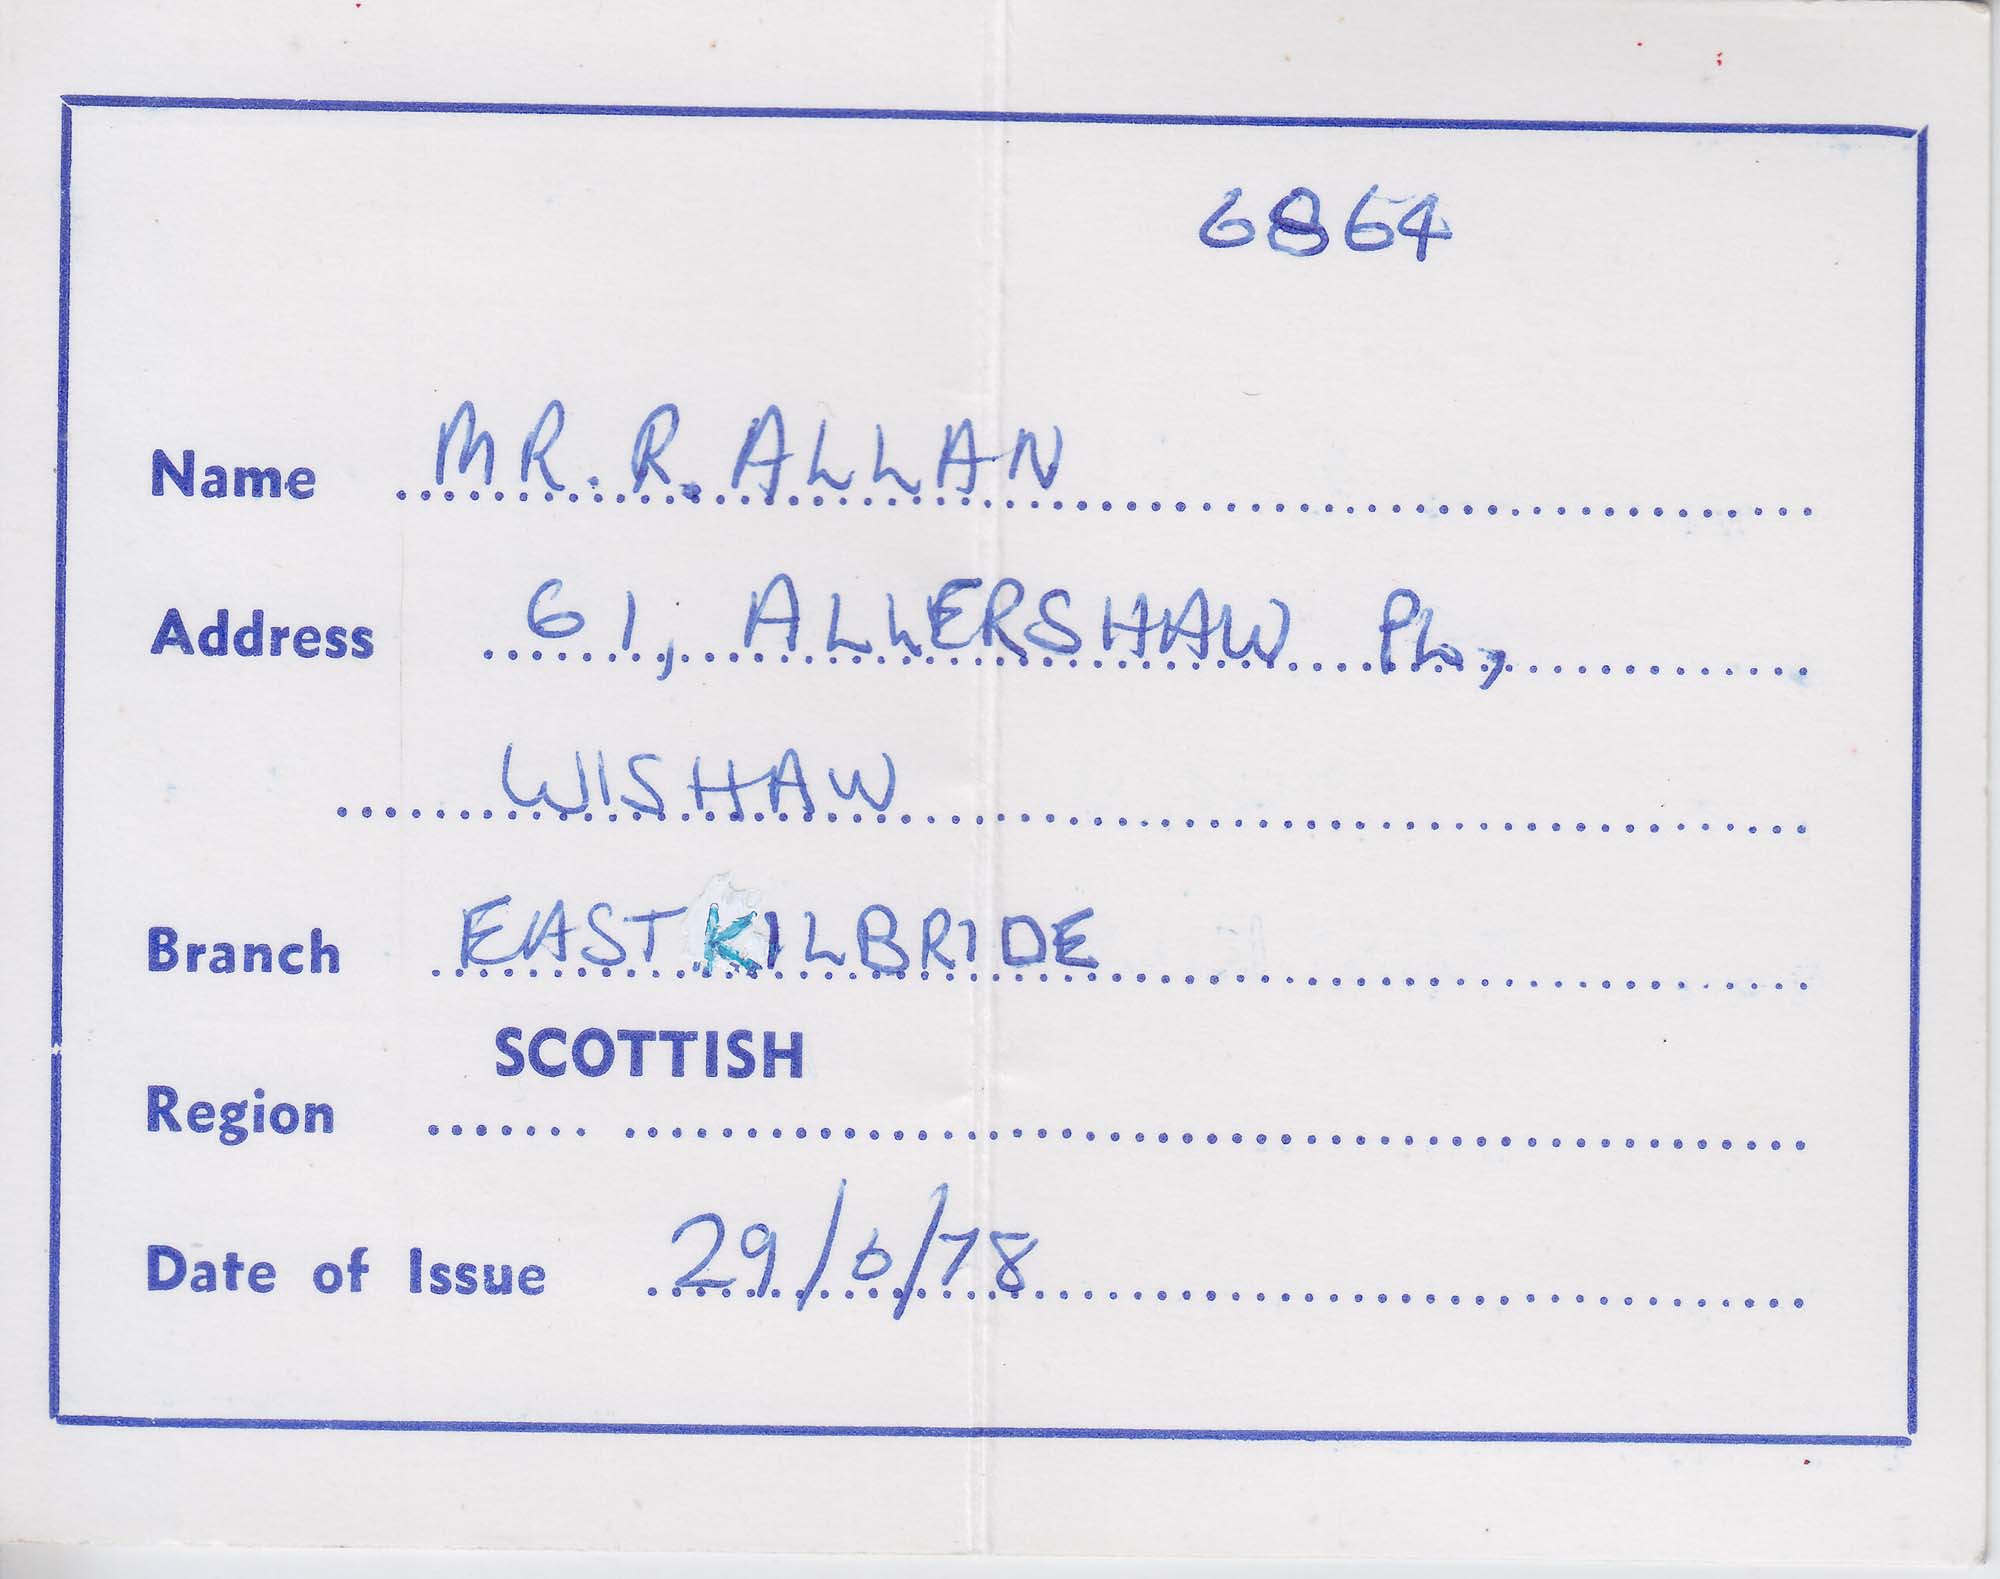 6864
Name MR. R. ALLAN
Address 61, ALLERSHAW PL,
WISHAW
Branch EAST KILBRIDE
SCOTTISH
Region
Date of Issue 29/6/78